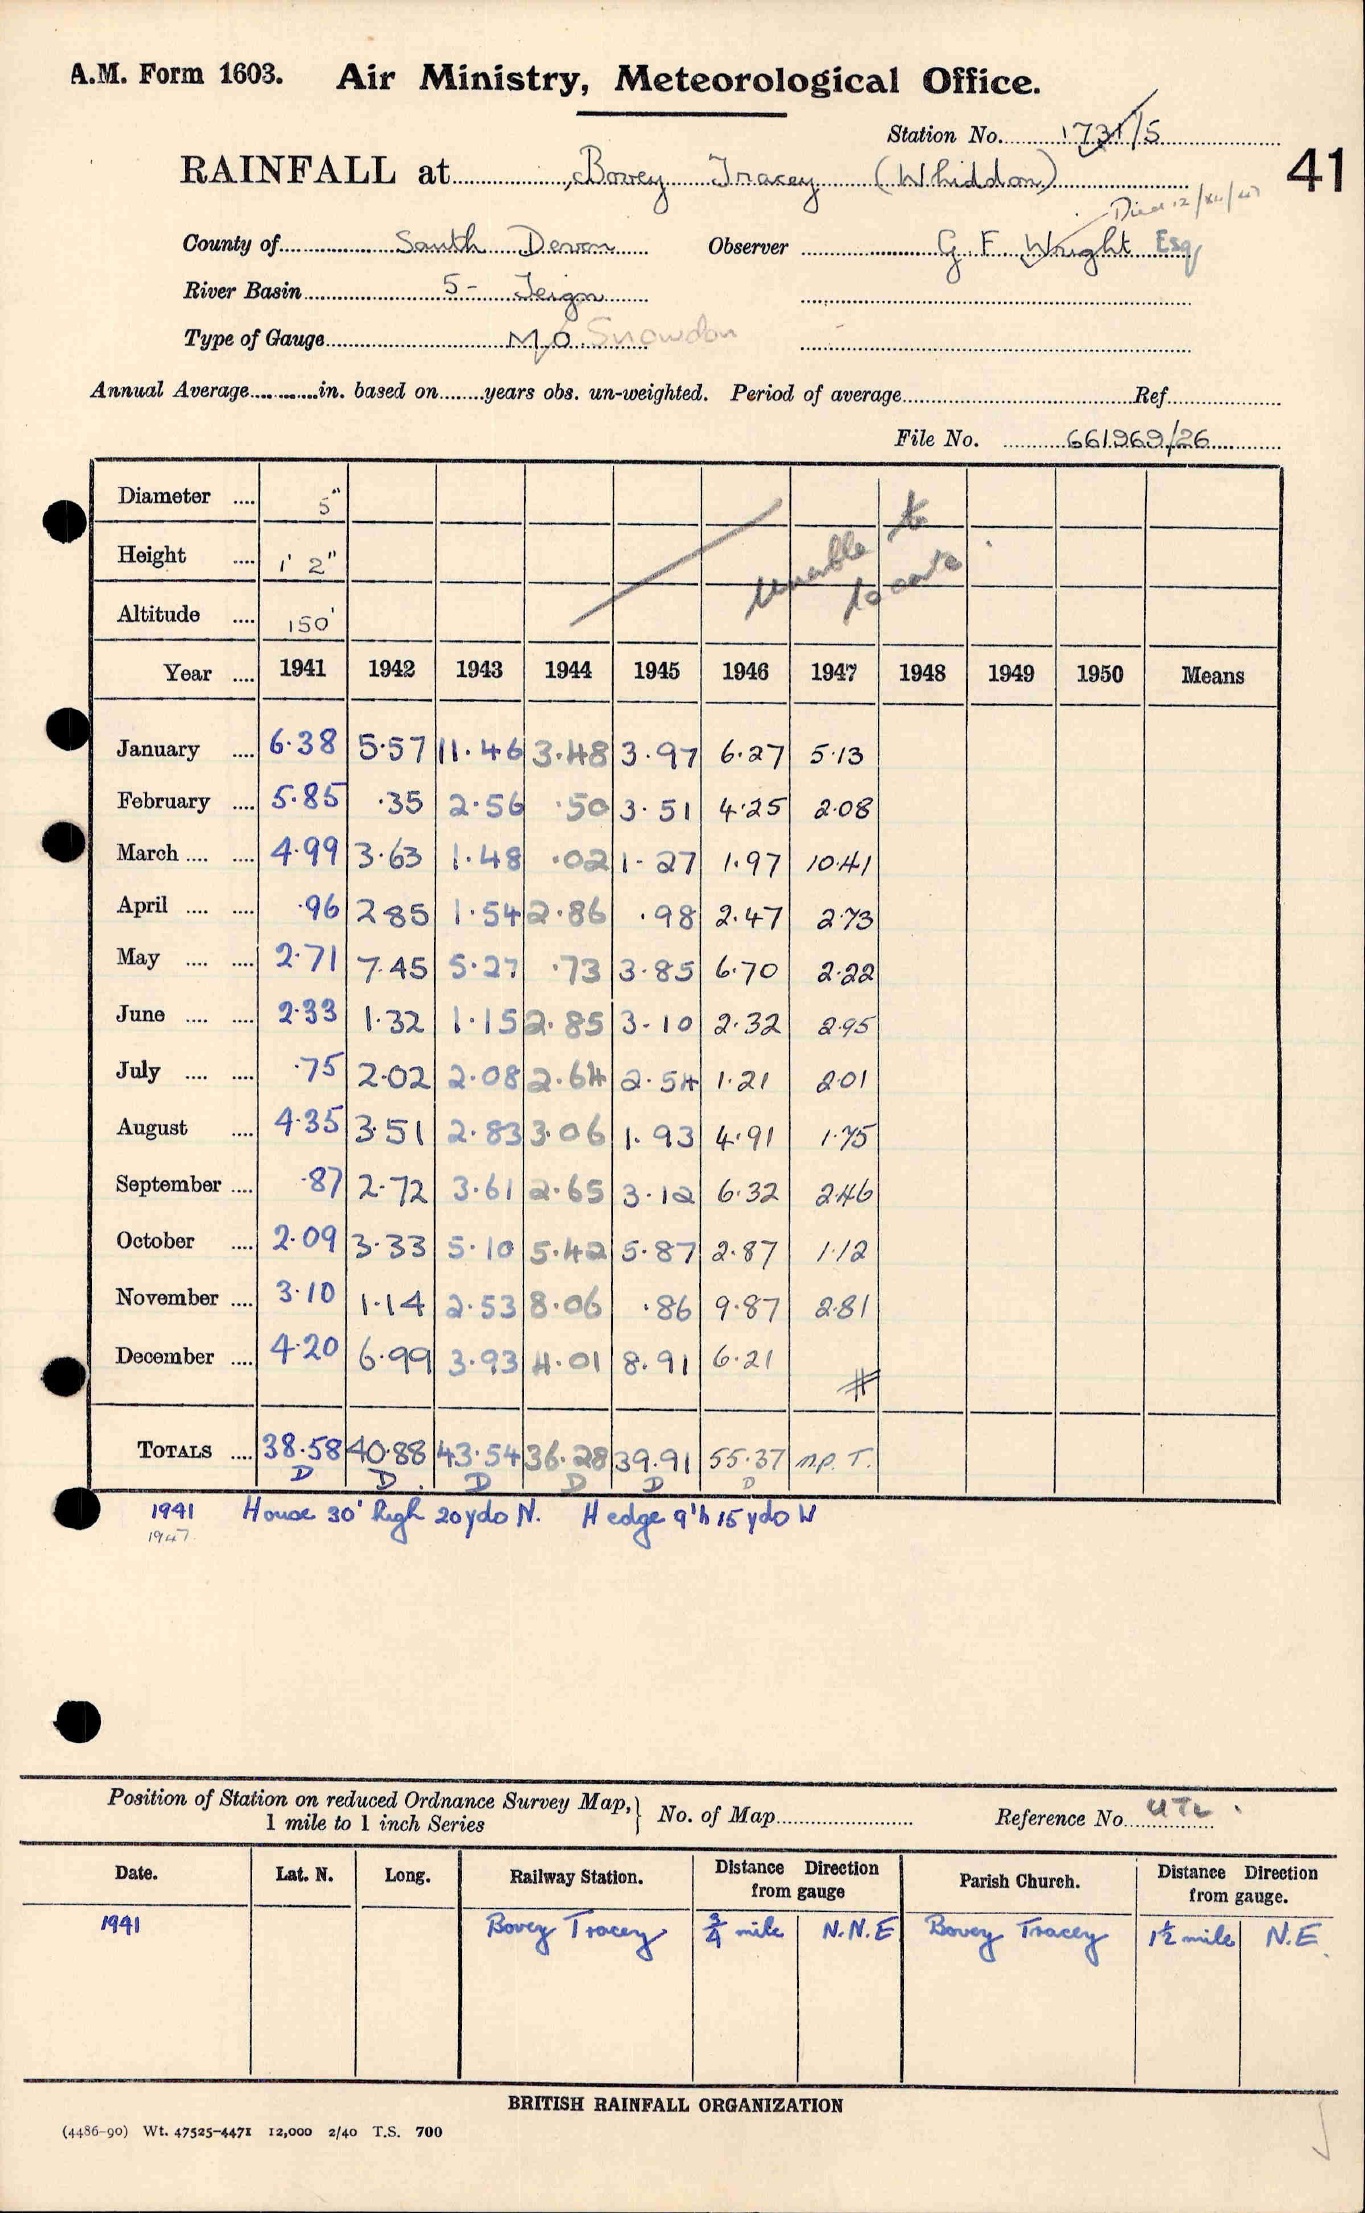 A.M. Form 1603. Air Ministry, Meteorological Office.
Station No. 1731/5
RAINFALL at Bovey Tracey (Whiddon) 41
Died 12/XII/47
County of South Devon Observer G F. Wright Esq
River Basin 5- Teign
Type of Gauge M/O Snowdon
Annual Average in. based on years obs. un-weighted. Period of average Ref.
File No. 661969/26
Diameter 5"
Height 1' 2" unable to locate
Altitude 150'
Year 1941 1942 1943 1944 1945 1946 1947 1948 1949 1950 Means
January 6.38 5.57 11.46 3.48 3.97 6.27 5.13
February 5.85 .35 2.56 .50 3.51 4.25 2.08
March 4.99 3.63 1.48 .02 1.27 1.97 10.41
April .96 2.85 1.54 2.86 .98 2.47 2.73
May 2.71 7.45 5.27 .73 3.85 6.70 2.22
June 2.33 1.32 1.15 2.85 3.10 2.32 2.95
July .75 2.02 2.08 2.64 2.54 1.21 2.01
August 4.35 3.51 2.83 3.06 1.93 4.91 1.75
September .87 2.72 3.61 2.65 3.12 6.32 2.46
October 2.09 3.33 5.10 5.42 5.87 2.87 1.12
November 3.10 1.14 2.53 8.06 .86 9.87 2.81
December 4.20 6.99 3.93 4.01 8.91 6.21
TOTALS 38.58 40.88 43.54 36.28 39.91 55.37 n.p. T.
D D D D D D
1941 House 30' high 20 yds N. Hedge 9'h 15 yds W
1947
Position of Station on reduced Ordnance Survey Map, 1 mile to 1 inch Series } No. of Map Reference No. UTL
Date. Lat. N. Long. Railway Station. Distance Direction from gauge Parish Church. Distance Direction from gauge.
1941 Bovey Tracey 3/4 mile N.N.E Bovey Tracey 1½ mile N.E.
BRITISH RAINFALL ORGANIZATION
(4486-90) Wt. 47525-4471 12,000 2/40 T.S. 700